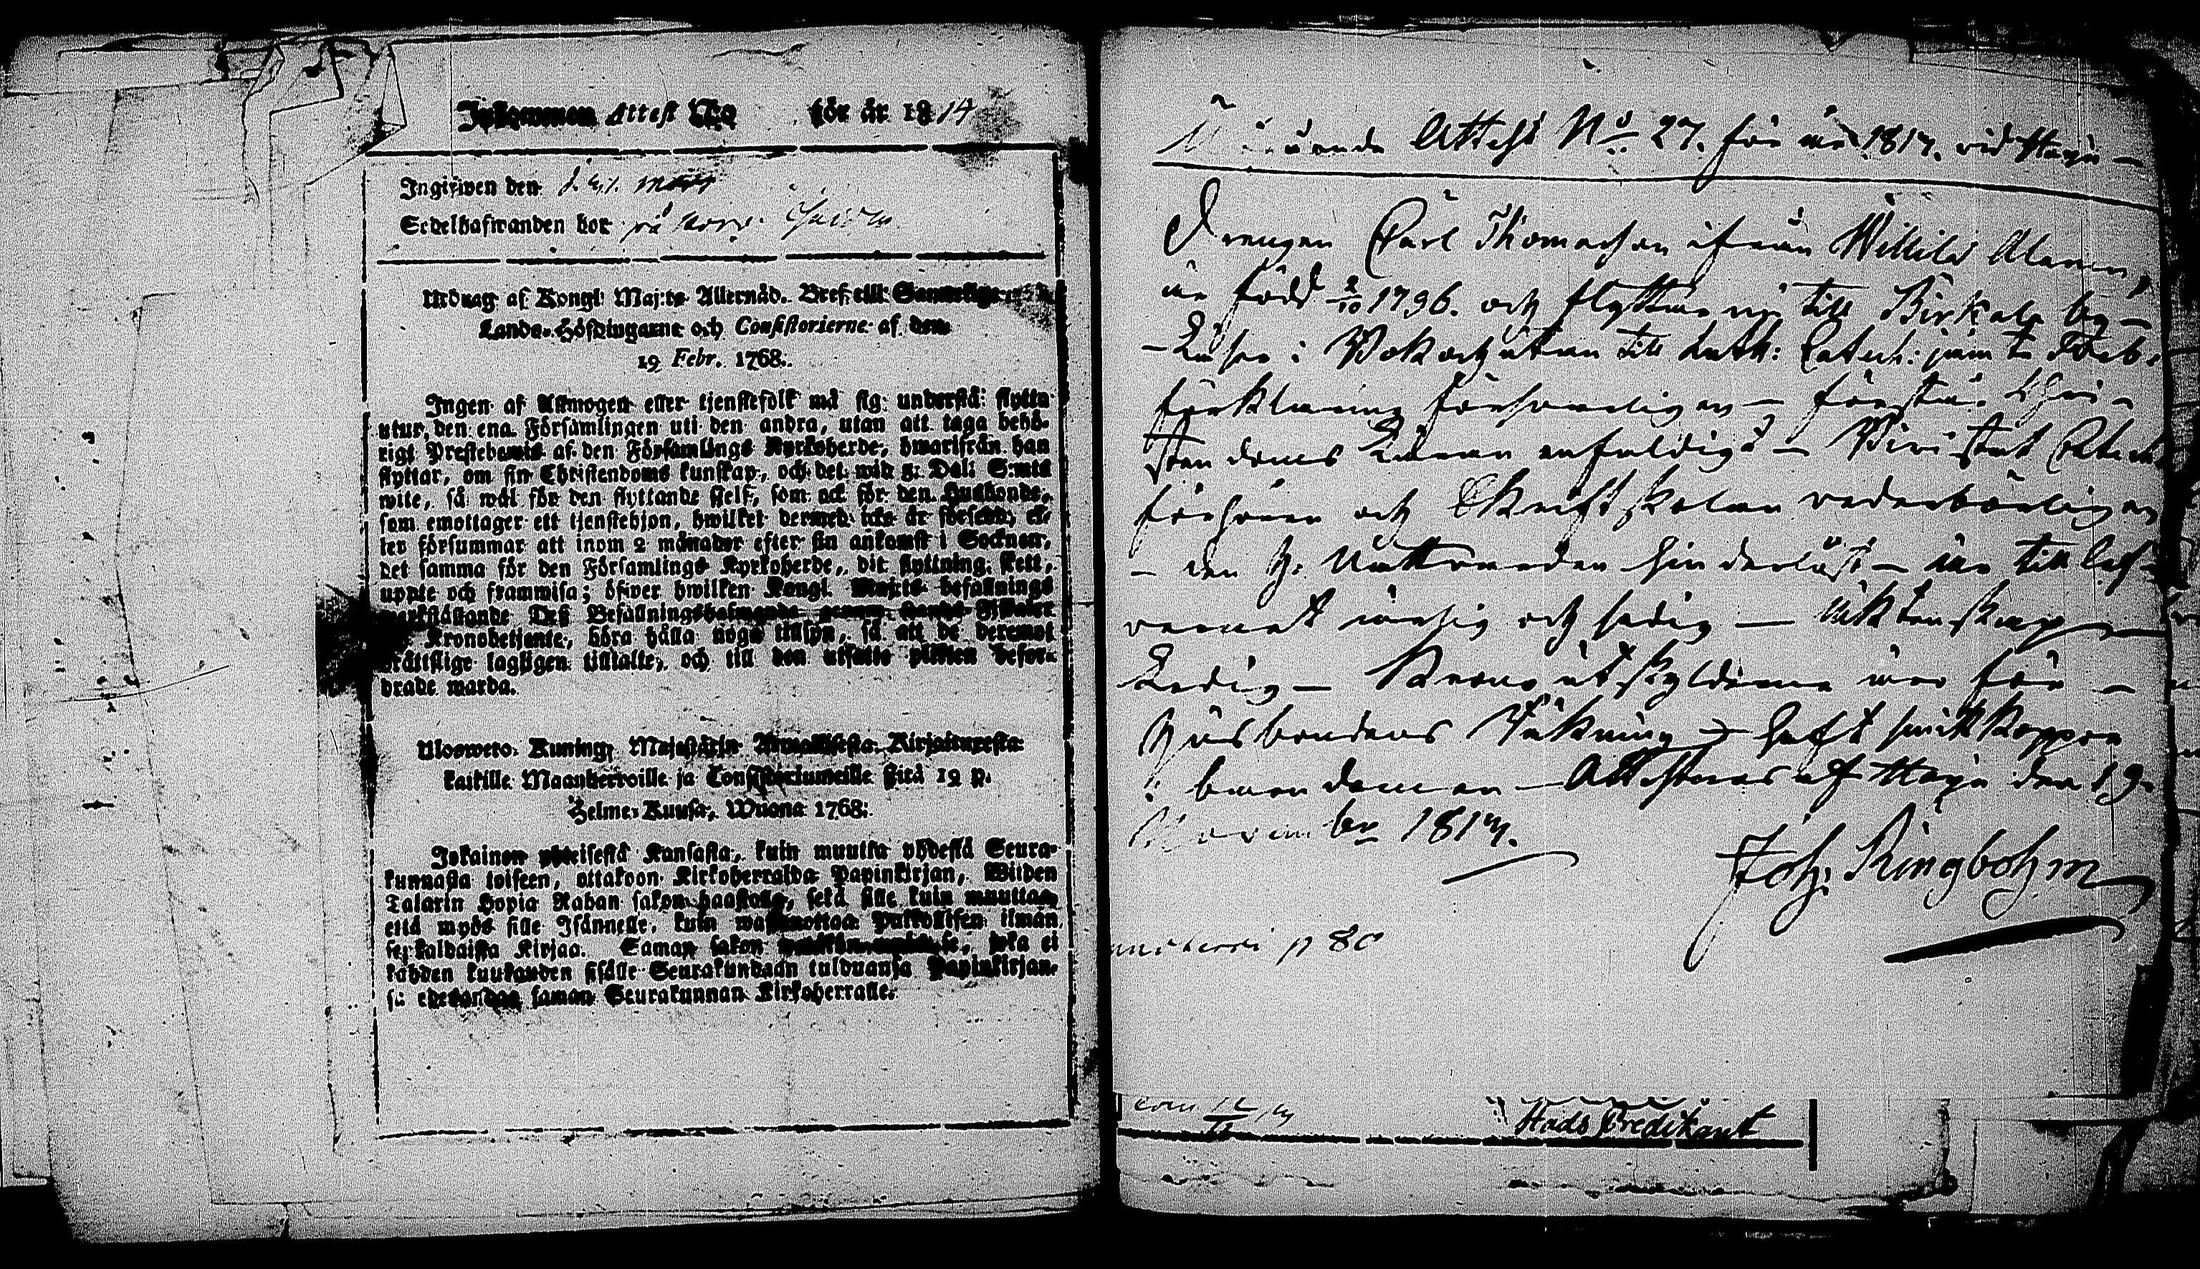 Inkommen Attest No för år 1814
Ingifwen den
Sedelhafwanden bor på
Utdrag af Kongl. Maj:ts Allernåd. Bref till Samtelige
Lands-Höfdingarne och Consistorierne af den
19 Febr. 1768.
Ingen af Allmogen eller tjenstefolk må sig understå flytta
utur den ena Församlingen uti den andra, utan att taga behö-
rigt Prestebewis af den Församlings Kyrkoherde, hwarifrån han
flyttar, om sin Christendoms kunskap, och det wid 2 Dal: S:mts
wite, så wäl för den flyttande sielf, som ock för den Husbonde,
som emottager ett tjenstehjon, hwilket dermed icke är försedt, el-
ler försummar att inom 2 månader efter sin ankomst i Socknen,
det samma för den Församlings Kyrkoherde, dit flyttning skett,
uppte och framwisa; öfwer hwilken Kongl. Maj:ts befallnings
werkställande Deß Befallningshafwande genom Deras
Kronobetjente, böra hålla noga tillsyn, så att de deremot
brottslige lagligen tilltalte, och till den utsatte plikten befor-
drade warda.
Ulosweto Kuning. Majestätin Armollisesta Kirjaituxesta
kaikille Maanherroille ja Consistoriumeille sitä 19 p.
Helme-Kuusa, Wuona 1768.
Jokainen yhteisestä Kansasta, kuin muutta yhdestä Seura-
kunnasta toiseen, ottakoon Kirkoherralda Papinkirjan, Wiiden
Talarin Hopia Rahan sakon haastolla, sekä sille kuin muuttaa
että myös sille Isännelle, kuin wastanottaa Palkollisen ilman
senkaldaista Kirjaa. Saman sakon se, joka ei
kahden kuukauden sisälle Seurakundaan tulduansa Papinkirjan-
sa edesanna saman Seurakunnan Kirkoherralle.
Attest No 27. för år 1817. vid Haju
Drengen Carl Thomasson ifrån Willilä
är född 2/10 1796. och flyttar nu till Birkala by
Läser i Bok och utan till Luth: Catech: jämte Sveb.
förklaring försvarligen förstår Chri-
stendoms Läran enfaldigt Bivistat Catech
förhören och Skriftskolan vederbörligen
den H. Nattvarden hinderlöst är till lef-
vernet ärlig och sedig Äktenskap
Ledig Krono utskylderna äro för
Husbondens Räkning haft smittkoppor
i barndomen Attesteras af Haju den 19
November 1817.
Joh: Ringbohm
p 80
Stads Predikant